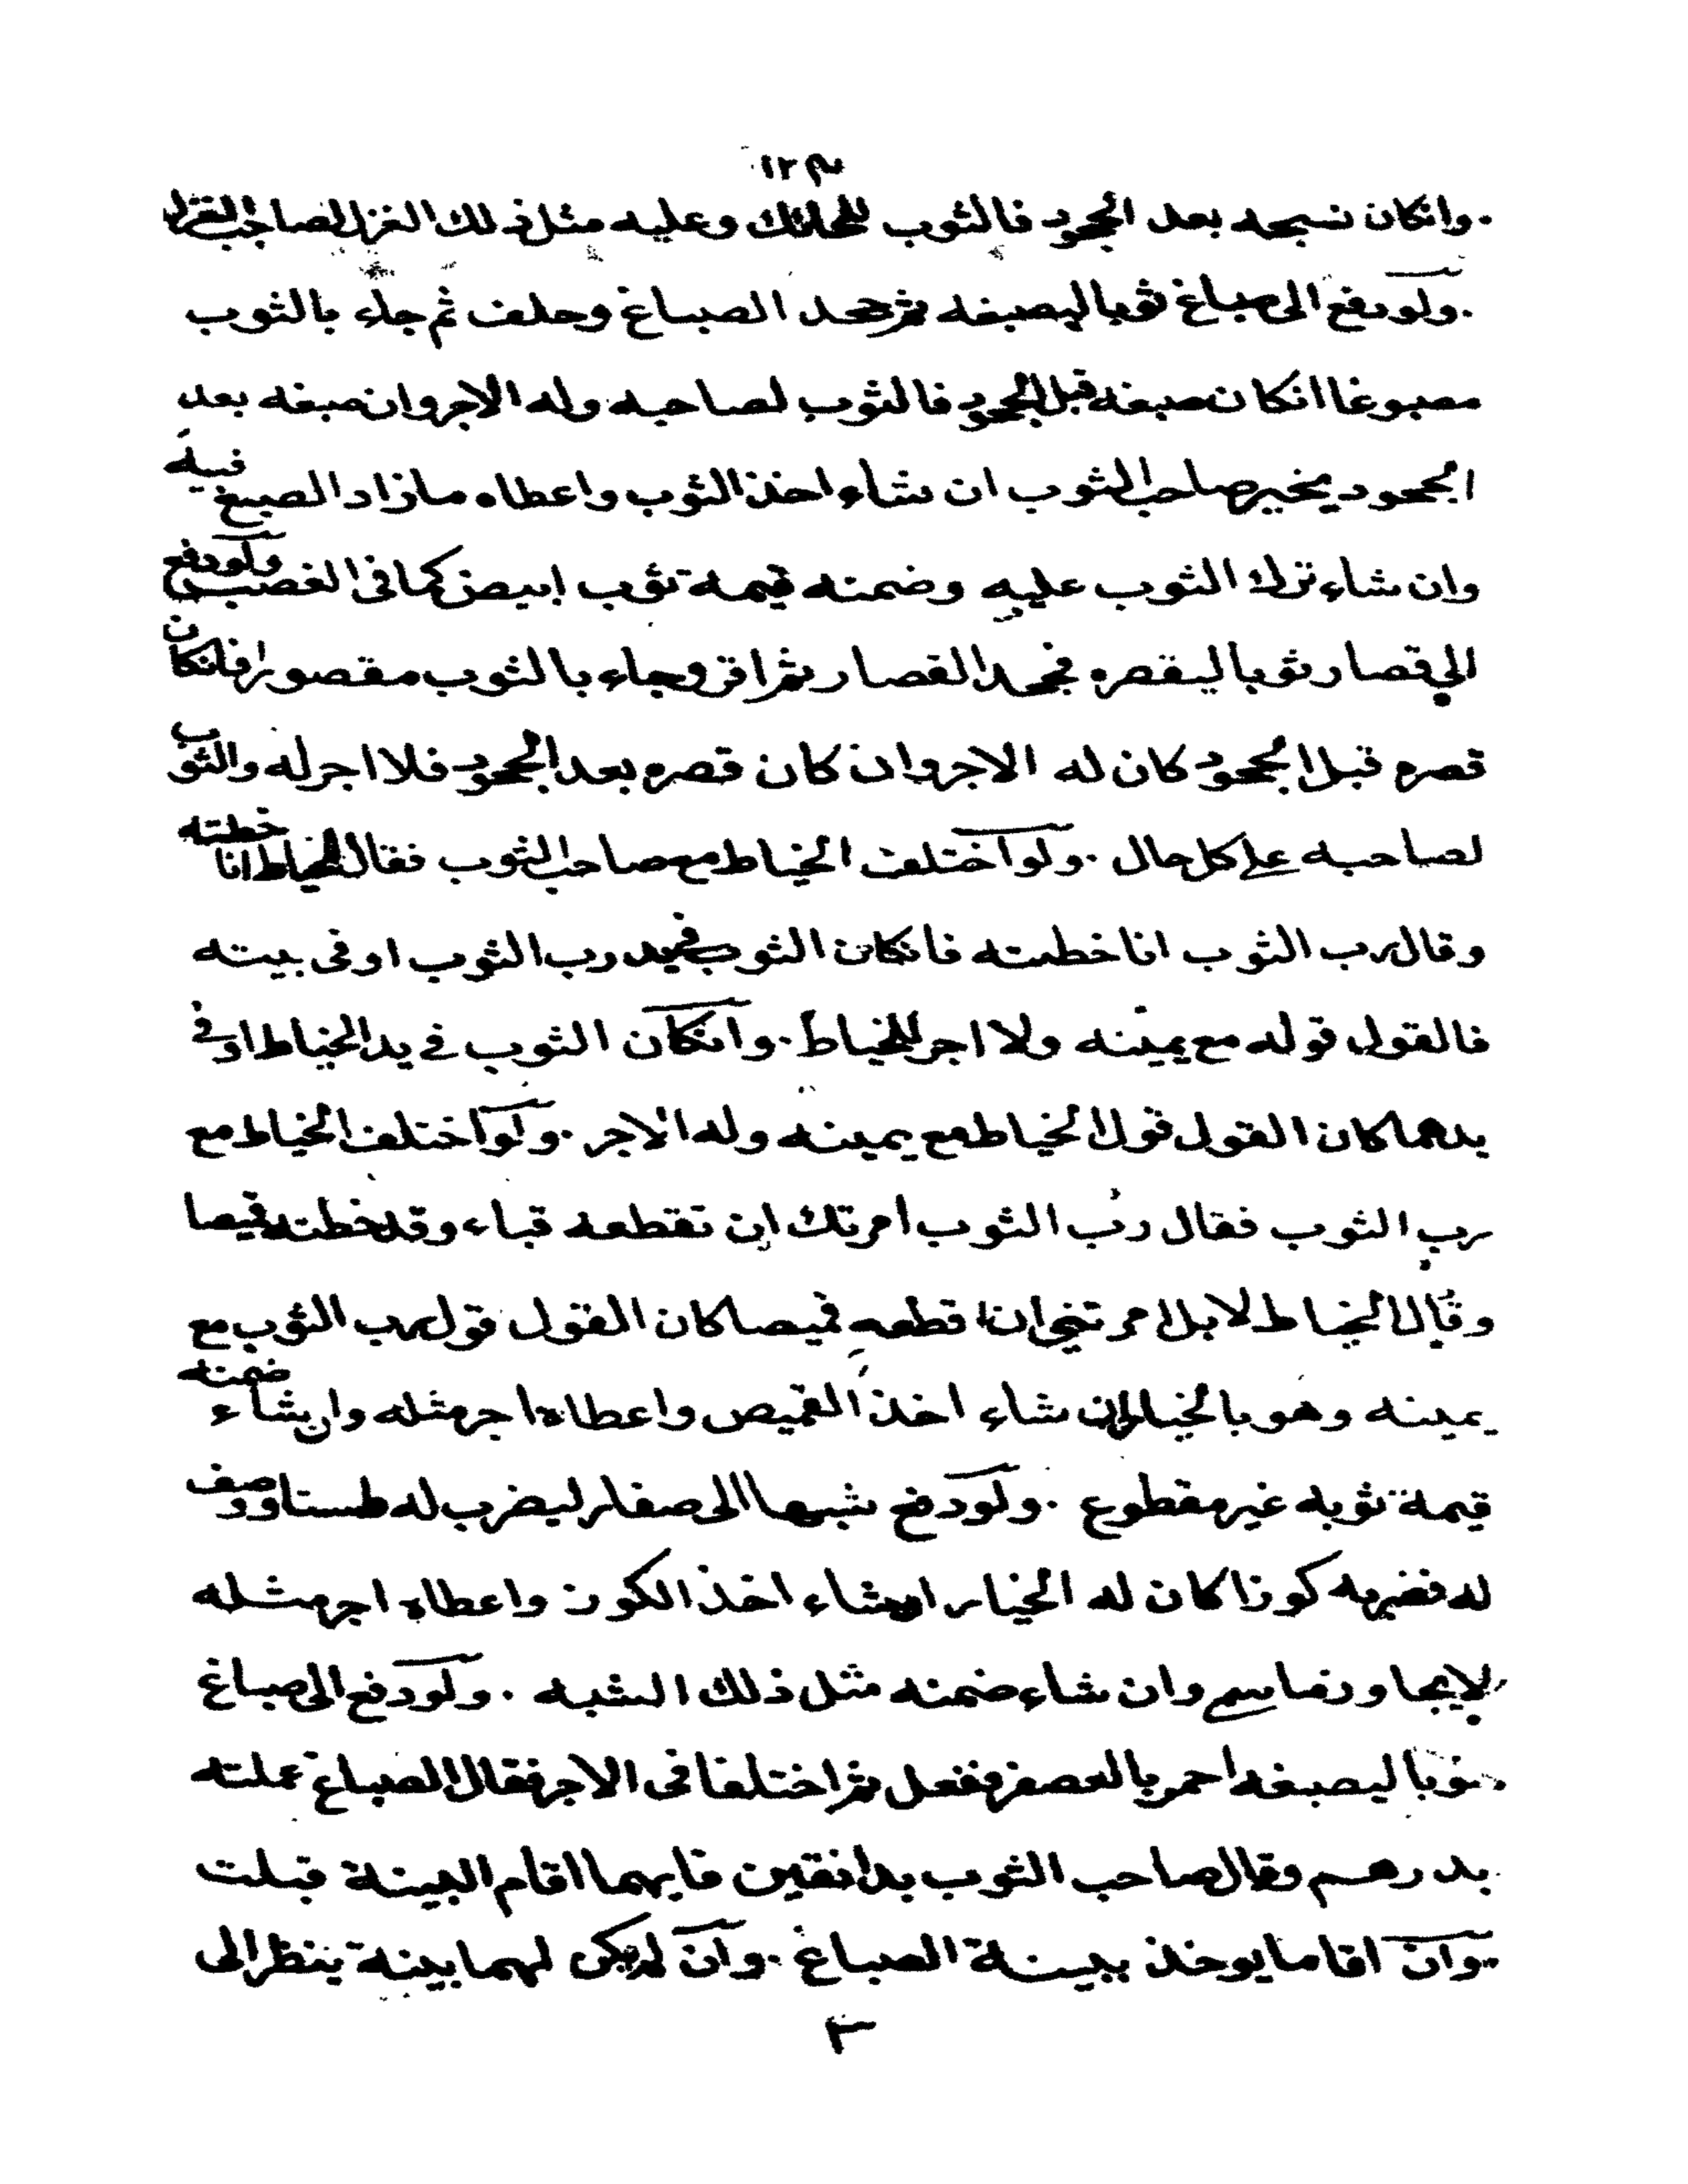 ١٢٣
وانكان نسجه بعد الجحود فالثوب للحائك وعليه مثل ذلك الغزل لصاحب الغزل
ولو دفع الى صباغ ثوبا ليصبغه ثم جحد الصباغ وحلف ثم جاء بالثوب
مصبوغا انكان صبغه قبل الجحود فالثوب لصاحبه وله الاجر وان صبغه بعد
الجحود يخير صاحب الثوب ان شاء اخذ الثوب واعطاه ما زاد الصبغ فيه
وان شاء ترك الثوب عليه وضمنه قيمة ثوب ابيض كما فى الغصب ولو دفع
الي قصار ثوبا ليقصره فجحد القصار ثم اقر وجاء بالثوب مقصورا فان كان
قصره قبل الجحود كان له الاجر وان كان قصره بعد الجحود فلا اجر له والثوب
لصاحبه على كل حال . ولو اختلف الخياط مع صاحب الثوب فقال الخياط انا خطته
وقال رب الثوب انا خطته فانكان الثوب في يد رب الثوب او فى بيته
فالقول قوله مع يمينه ولا اجر للخياط . وانكان الثوب في يد الخياط او في
يدهما كان القول قول الخياط مع يمينه وله الاجر . ولو اختلف الخياط مع
رب الثوب فقال رب الثوب امرتك ان تقطعه قباء وقد خطته قميصا
وقال الخياط لا بل امرتني ان اقطعه قميصا كان القول قول رب الثوب مع
يمينه وهو بالخيار ان شاء اخذ القميص واعطاه اجر مثله وان شاء ضمنه
قيمة ثوبه غير مقطوع . ولو دفع شبها الى صفار ليضرب له طستا ووصف
له فضربه كوزا كان له الخيار ان شاء اخذ الكوز واعطاه اجر مثله
لا يجاوز ما سمى وان شاء ضمنه مثل ذلك الشبه . ولو دفع الى صباغ
ثوبا ليصبغه احمر بالعصفر ففعل ثم اختلفا فى الاجر فقال الصباغ عملته
بدرهم وقال صاحب الثوب بدانقين فايهما اقام البينة قبلت
وان اقاما يوخذ ببينة الصباغ . وان لم يكن لهما بينة ينظر الى